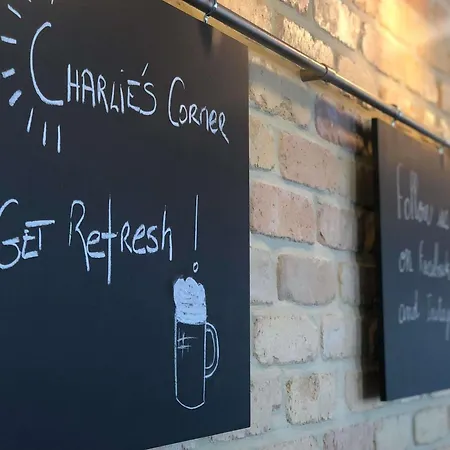 Charlie's Corner
Get Refresh!
#
Follow us
on Facebook
and Instag